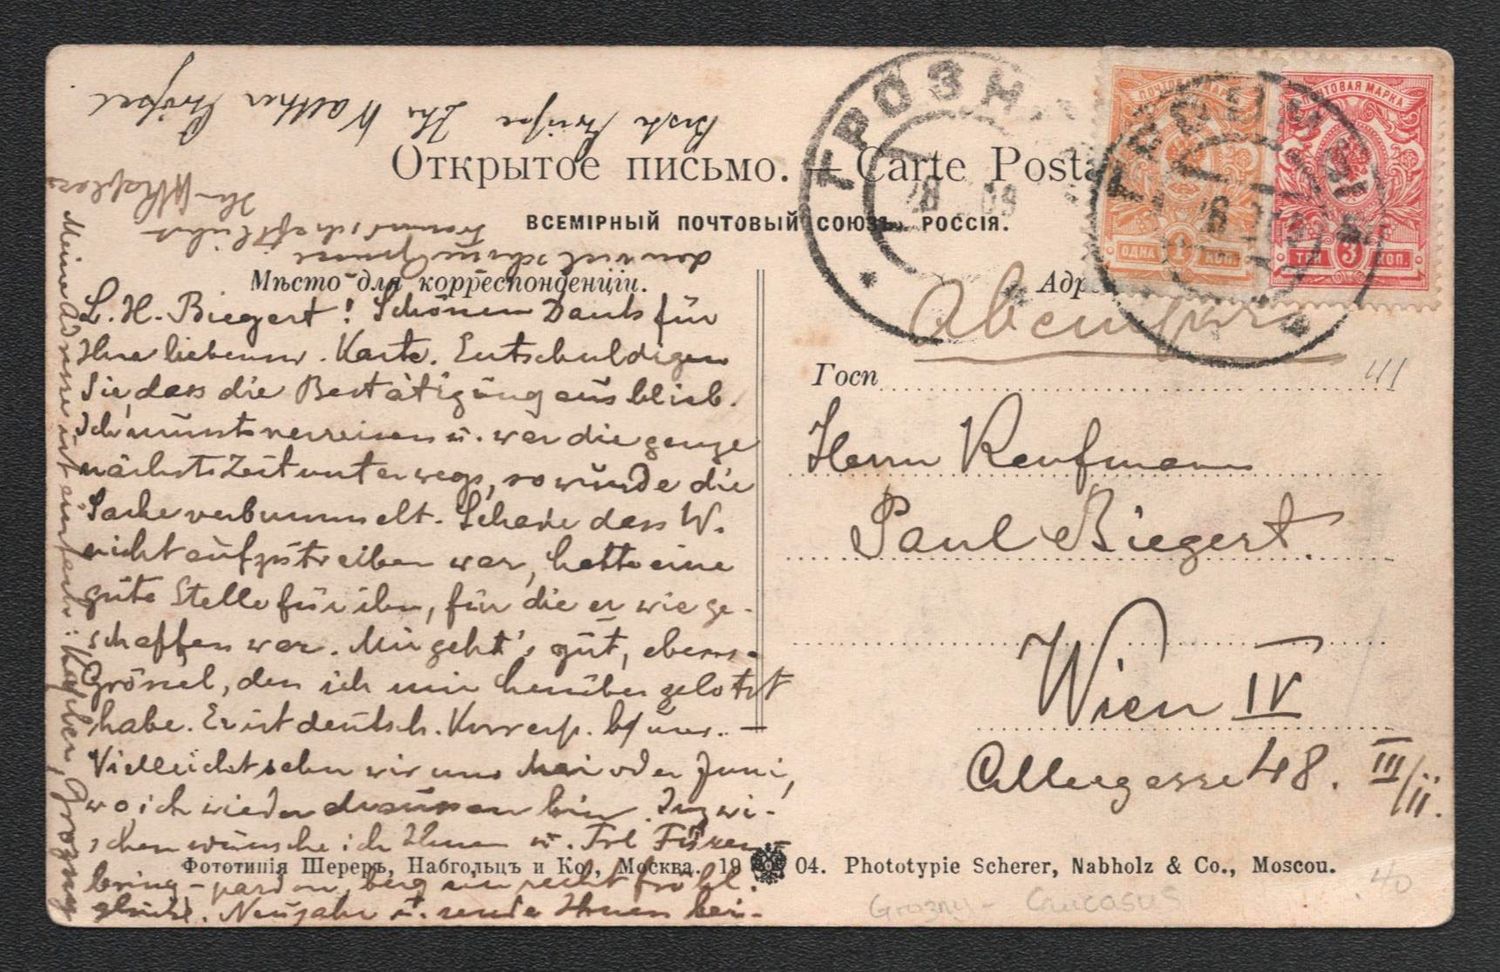 Открытое письмо. — Carte Posta
ВСЕМІРНЫЙ ПОЧТОВЫЙ СОЮЗЪ. РОССІЯ.
Мѣсто для корреспонденціи.
L. H. Biegert! Schönen Dank für
Ihre liebensw. Karte. Entschuldigen
Sie, dass die Bestätigung ausblieb.
Ich musste verreisen u. war die ganze
nächste Zeit unterwegs, so wurde die
Sache verbummelt. Schade dass W.
nicht aufzutreiben war, hatte eine
gute Stelle für ihn, für die er wie ge-
schaffen war. Mir geht's gut, ebenso
Grössel, den ich mir herüber gelotst
habe. Er ist deutsch. Korresp. b/uns. —
Vielleicht sehn wir uns Mai oder Juni,
wo ich wieder draussen bin. Inzwi-
schen wünsche ich Ihnen u. Frl
bring - pardon, berg ein recht frohl.
glückl. Neujahr u. sende Ihnen bei-
Freundschaftlichst
Beste Grüsse Ihr Walther Grössel
Meine Adresse ist einfach: Grozny
ГРОЗН
28 09
ОДНА 1 КОП.
ПОЧТОВАЯ МАРКА
ТРИ 3 КОП.
Адр
Австрія
Госп
41
Herrn Kaufmann
Paul Biegert.
Wien IV
Allergasse 48. III/ii.
Фототипія Шереръ, Набгольцъ и Ко., Москва. 19 04. Phototypie Scherer, Nabholz & Co., Moscou.
40
Grozny - Caucasus